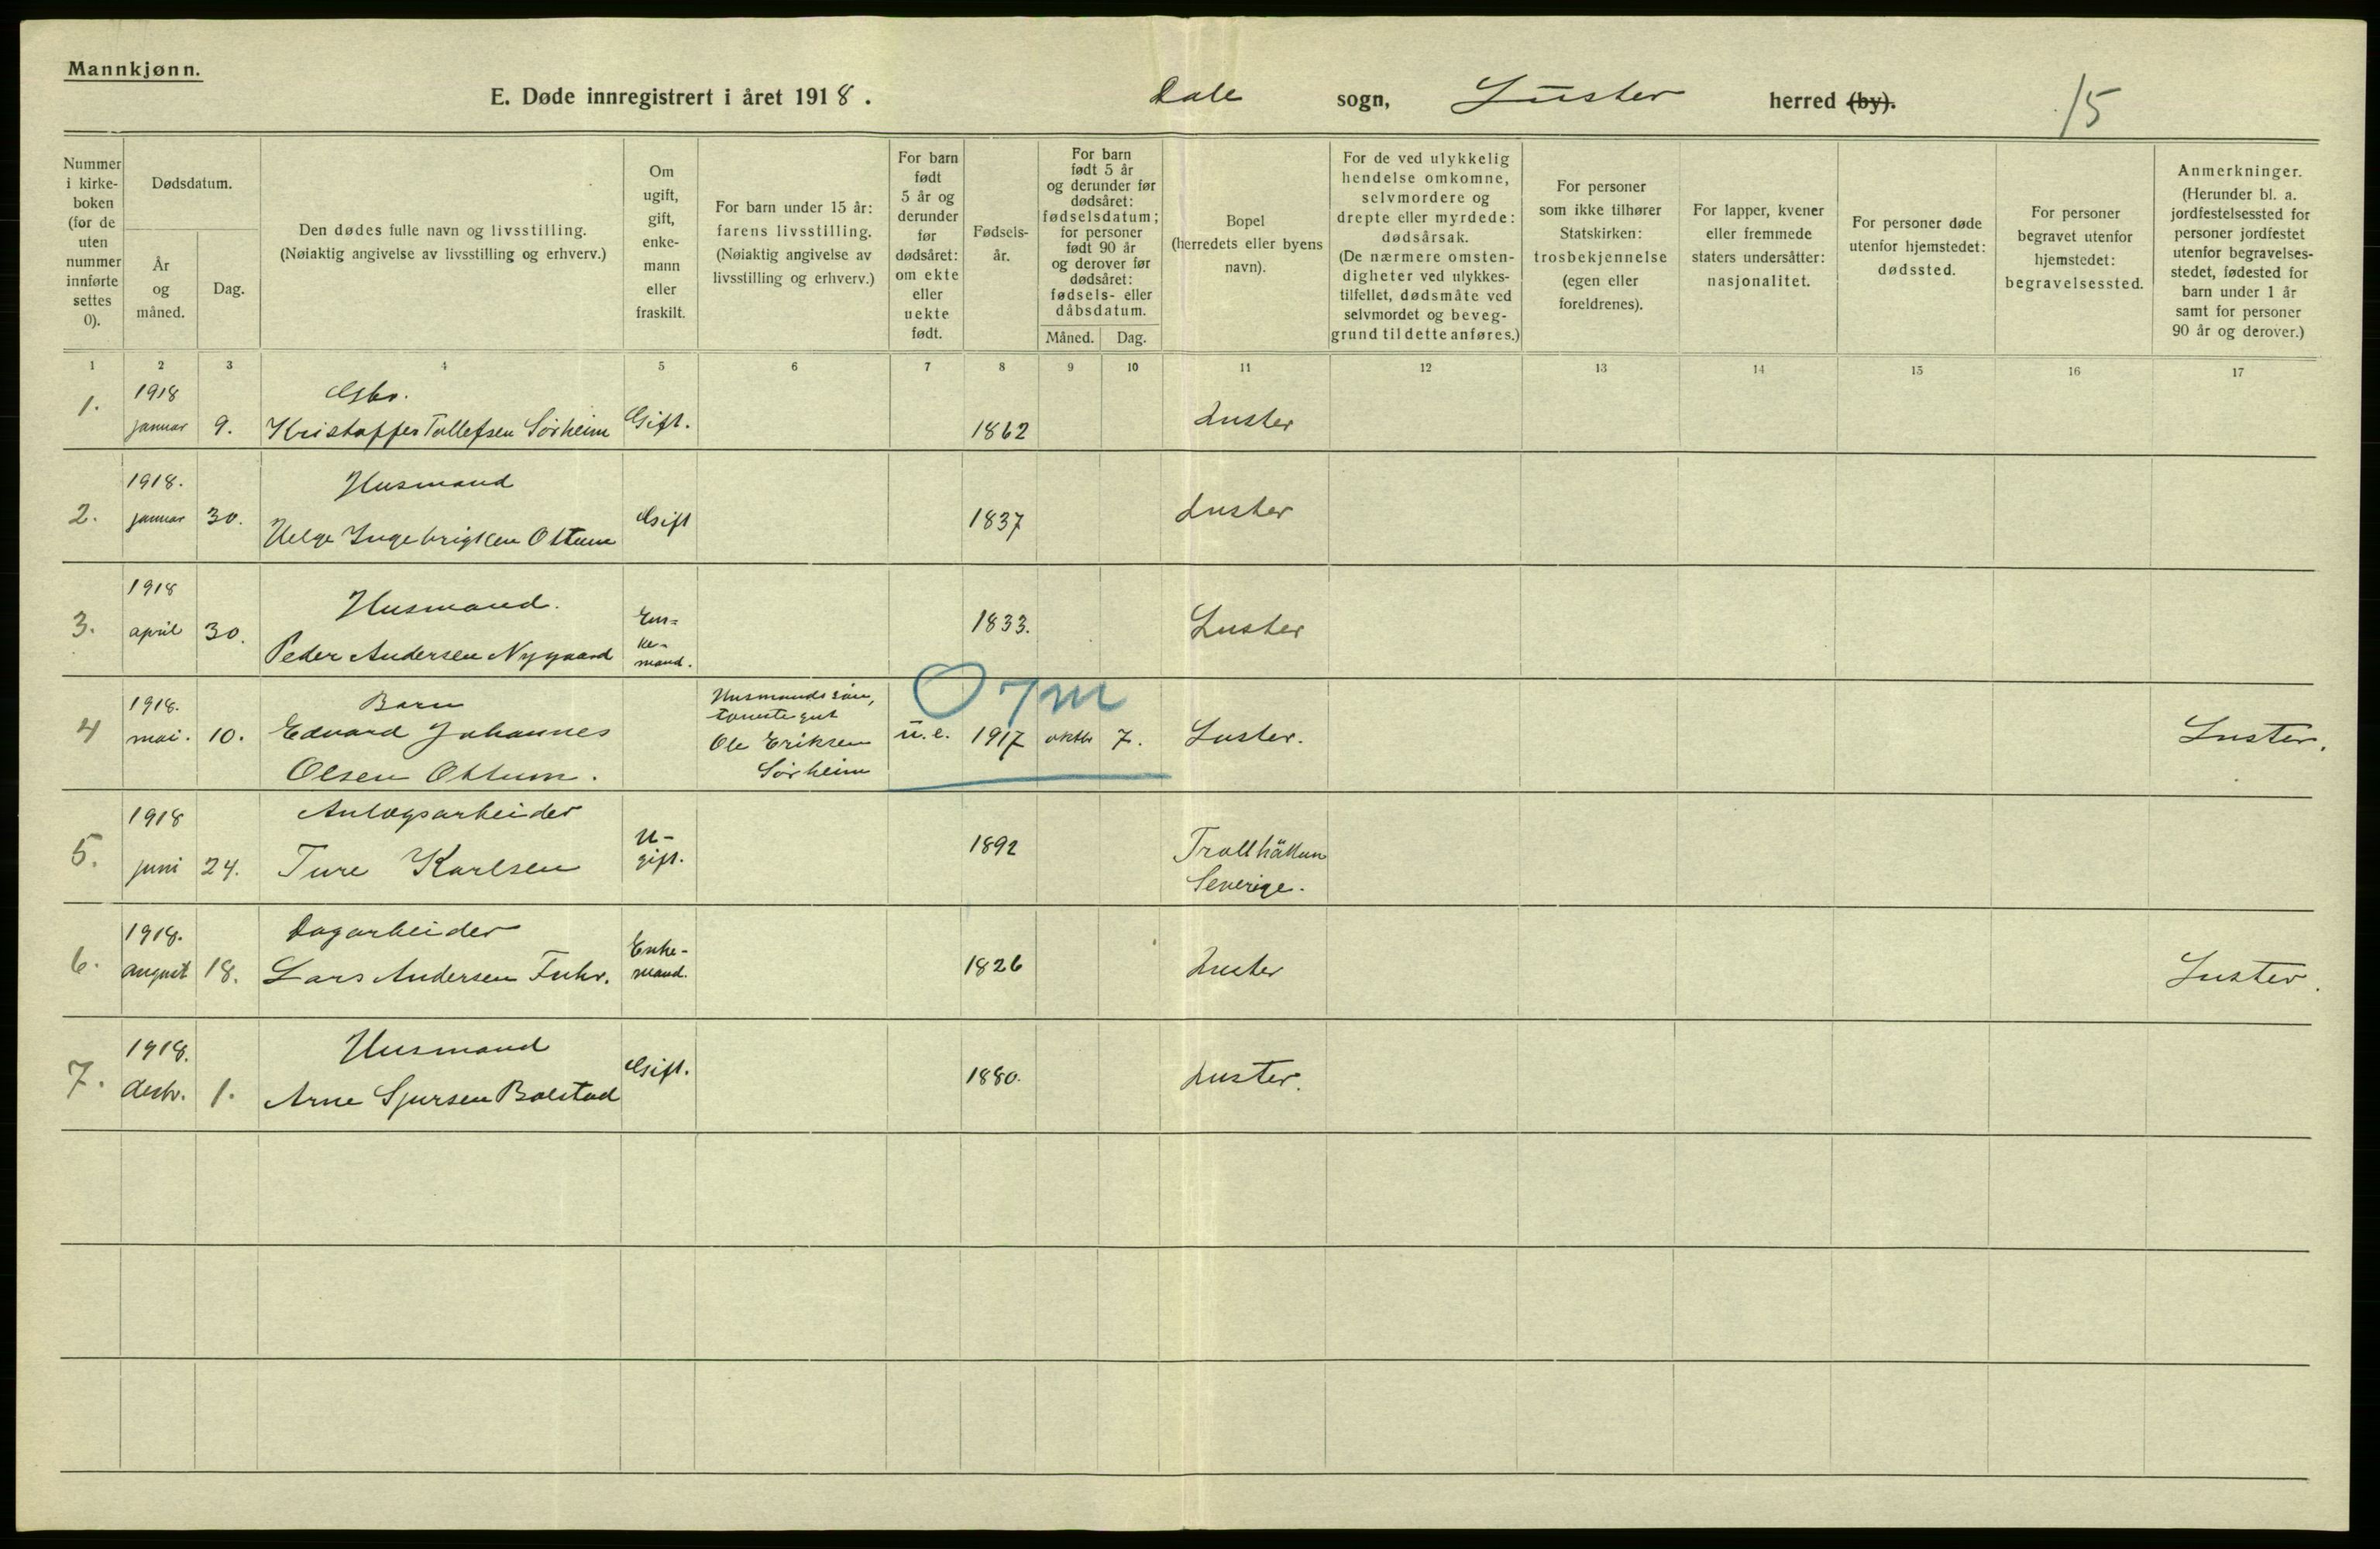 Mannkjønn.
E. Døde innregistrert i året 1918. Dale sogn, Luster herred (by). 15
Nummer i kirke-boken (for de uten nummer innførte settes 0).
Dødsdatum.
År og måned.
Dag.
Den dødes fulle navn og livsstilling.
(Nøiaktig angivelse av livsstilling og erhverv.)
Om ugift, gift, enke-mann eller fraskilt.
For barn under 15 år: farens livsstilling.
(Nøiaktig angivelse av livsstilling og erhverv.)
For barn født 5 år og derunder før dødsåret: om ekte eller uekte født.
Fødsels-år.
For barn født 5 år og derunder før dødsåret: fødselsdatum; for personer født 90 år og derover før dødsåret: fødsels- eller dåbsdatum.
Måned. Dag.
Bopel
(herredets eller byens navn).
For de ved ulykkelig hendelse omkomne, selvmordere og drepte eller myrdede: dødsårsak.
(De nærmere omsten-digheter ved ulykkes-tilfellet, dødsmåte ved selvmordet og beveg-grund til dette anføres.)
For personer som ikke tilhører Statskirken: trosbekjennelse
(egen eller foreldrenes).
For lapper, kvener eller fremmede staters undersåtter: nasjonalitet.
For personer døde utenfor hjemstedet: dødssted.
For personer begravet utenfor hjemstedet: begravelsessted.
Anmerkninger.
(Herunder bl. a. jordfestelsessted for personer jordfestet utenfor begravelses-stedet, fødested for barn under 1 år samt for personer 90 år og derover.)
1 2 3 4 5 6 7 8 9 10 11 12 13 14 15 16 17
1918 Gbr.
1. januar 9. Kristoffer Tollefsen Sørheim Gift. 1862 Luster
1918. Husmand
2. januar 30. Helge Ingebrigtsen Ottum Gift 1837 Luster
1918 Husmand.
3. april 30. Peder Andersen Nygaard En=ke-mand. 1833. Luster
1918. Barn Husmandssøn, O 7m
4 mai. 10. Edvard Johannes Ole Eriksen u.e. 1917 oktbr 7. Luster. Luster.
Olsen Ottum. Sørheim
1918 Anlægsarbeider
5. juni 24. Ture Karlsen U-gift. 1892 Trollhättan
Sverige.
1918. Dagarbeider
6. august 18. Lars Andersen Fuhr. Enke-mand. 1826 Luster Luster.
1918. Husmand
7. desbr. 1. Arne Sjursen Bolstad Gift. 1880. Luster.